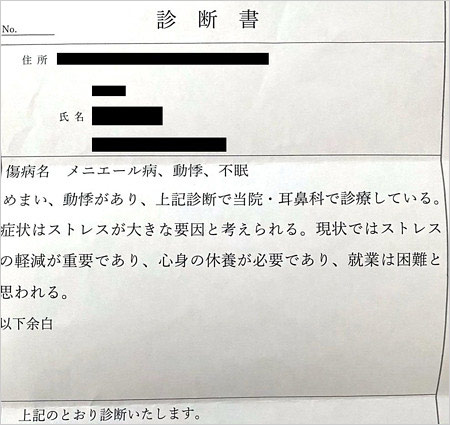 診断書
No.
住所
氏名
傷病名　メニエール病、動悸、不眠
めまい、動悸があり、上記診断で当院・耳鼻科で診療している。
症状はストレスが大きな要因と考えられる。現状ではストレス
の軽減が重要であり、心身の休養が必要であり、就業は困難と
思われる。
以下余白
上記のとおり診断いたします。